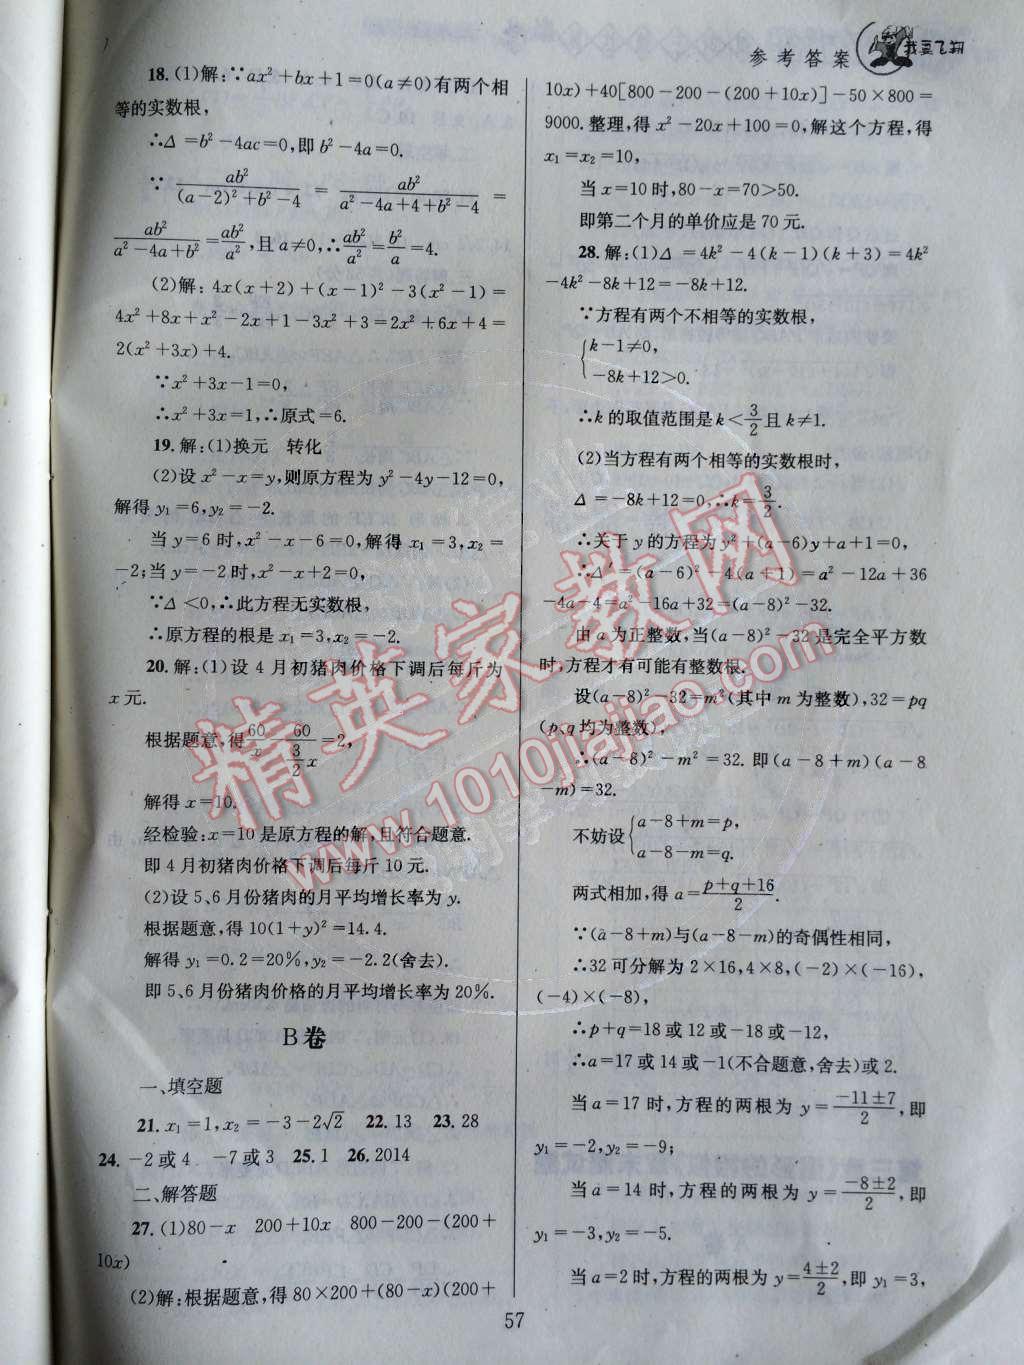 参考答案
我要飞翔
18.(1)解:∵ax²+bx+1=0(a≠0)有两个相
等的实数根,
∴Δ=b²-4ac=0,即 b²-4a=0.
∵ab²/((a-2)²+b²-4)=ab²/(a²-4a+4+b²-4)=
ab²/(a²-4a+b²)=ab²/a²,且 a≠0,∴ab²/a²=b²/a=4.
(2)解:4x(x+2)+(x-1)²-3(x²-1)=
4x²+8x+x²-2x+1-3x²+3=2x²+6x+4=
2(x²+3x)+4.
∵x²+3x-1=0,
∴x²+3x=1,∴原式=6.
19.解:(1)换元 转化
(2)设 x²-x=y,则原方程为 y²-4y-12=0,
解得 y₁=6,y₂=-2.
当 y=6 时,x²-x-6=0,解得 x₁=3,x₂=
-2;当 y=-2时,x²-x+2=0,
∵Δ<0,∴此方程无实数根,
∴原方程的根是 x₁=3,x₂=-2.
20.解:(1)设 4 月初猪肉价格下调后每斤为
x 元.
根据题意,得60/x-60/(3/2 x)=2,
解得 x=10.
经检验:x=10 是原方程的解,且符合题意.
即 4 月初猪肉价格下调后每斤 10 元.
(2)设 5、6 月份猪肉的月平均增长率为 y.
根据题意,得 10(1+y)²=14.4.
解得 y₁=0.2=20%,y₂=-2.2(舍去).
即 5、6 月份猪肉价格的月平均增长率为 20%.
B卷
一、填空题
21.x₁=1,x₂=-3-2√2 22.13 23.28
24.-2或 4 -7或 3 25.1 26.2014
二、解答题
27.(1)80-x 200+10x 800-200-(200+
10x)
(2)解:根据题意,得 80×200+(80-x)(200+
10x)+40[800-200-(200+10x)]-50×800=
9000.整理,得 x²-20x+100=0,解这个方程,得
x₁=x₂=10,
当 x=10 时,80-x=70>50.
即第二个月的单价应是 70 元.
28.解:(1)Δ=4k²-4(k-1)(k+3)=4k²
-4k²-8k+12=-8k+12.
∵方程有两个不相等的实数根,
{k-1≠0,
-8k+12>0.
∴k 的取值范围是 k<3/2且 k≠1.
(2)当方程有两个相等的实数根时,
Δ=-8k+12=0,∴k=3/2.
∴关于 y 的方程为 y²+(a-6)y+a+1=0,
∴Δ′=(a-6)²-4(a+1)=a²-12a+36
-4a-4=a²-16a+32=(a-8)²-32.
由 a 为正整数,当(a-8)²-32 是完全平方数
时,方程才有可能有整数根.
设(a-8)²-32=m²(其中 m 为整数),32=pq
(p、q 均为整数),
∴(a-8)²-m²=32.即(a-8+m)(a-8
-m)=32.
不妨设{a-8+m=p,
a-8-m=q.
两式相加,得 a=(p+q+16)/2.
∵(a-8+m)与(a-8-m)的奇偶性相同,
∴32 可分解为 2×16,4×8,(-2)×(-16),
(-4)×(-8),
∴p+q=18 或 12 或-18 或-12,
∴a=17 或 14 或-1(不合题意,舍去)或 2.
当 a=17 时,方程的两根为 y=(-11±7)/2,即
y₁=-2,y₂=-9;
当 a=14 时,方程的两根为 y=(-8±2)/2,即
y₁=-3,y₂=-5.
当 a=2 时,方程的两根为 y=(4±2)/2,即 y₁=3,
57
精英家教网
www.1010jiajiao.com